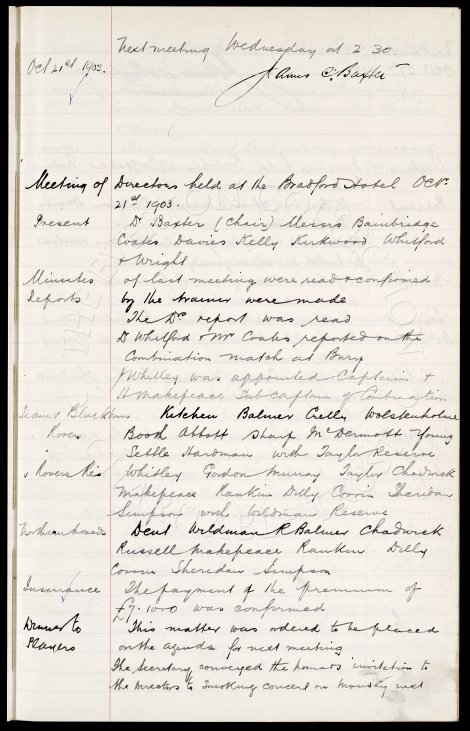 Next meeting Wednesday at 2.30.
Oct 21st 1903.
James C. Baxter
Meeting of Directors held at the Bradford Hotel Octr
21st 1903.
Present Dr Baxter (Chair) Messrs Bainbridge
Coates Davies Kelly Kirkwood Whitford
& Wright
Minutes of last meeting were read & confirmed
Reports by the trainer were made
The Drs report was read
D Whitford & Mr Coates reported on the
Combination match at Bury
J Whitley was appointed Captain &
H Makepeace Sub captain of Combination
Team v Blackburn Kitchen Balmer Crelly Wolstenholme
Rovers Booth Abbott Sharp McDermott Young
Settle Hardman with Taylor Reserve
v Rovers Res Whitley Gordon Murray Taylor Chadwick
Makepeace Rankin Dilly Corrin Sheridan
Simpson with Wildman Reserve
Northern Nomads Dent Wildman R Balmer Chadwick
Russell Makepeace Rankin Dilly
Corrin Sheridan Simpson
Insurance The payment of the premium of
£7.10.0 was confirmed
Dinner to This matter was ordered to be placed
Players on the agenda for next meeting
The Secretary conveyed the Nomads invitation to
the Directors to Smoking Concert on Monday next